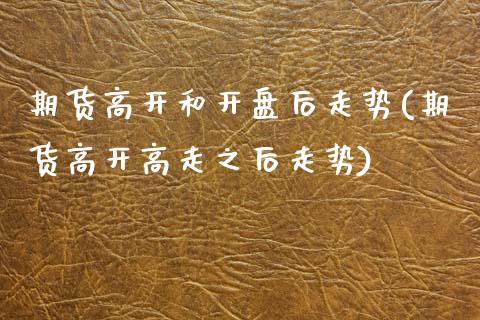 期货高开和开盘后走势(期
货高开高走之后走势)